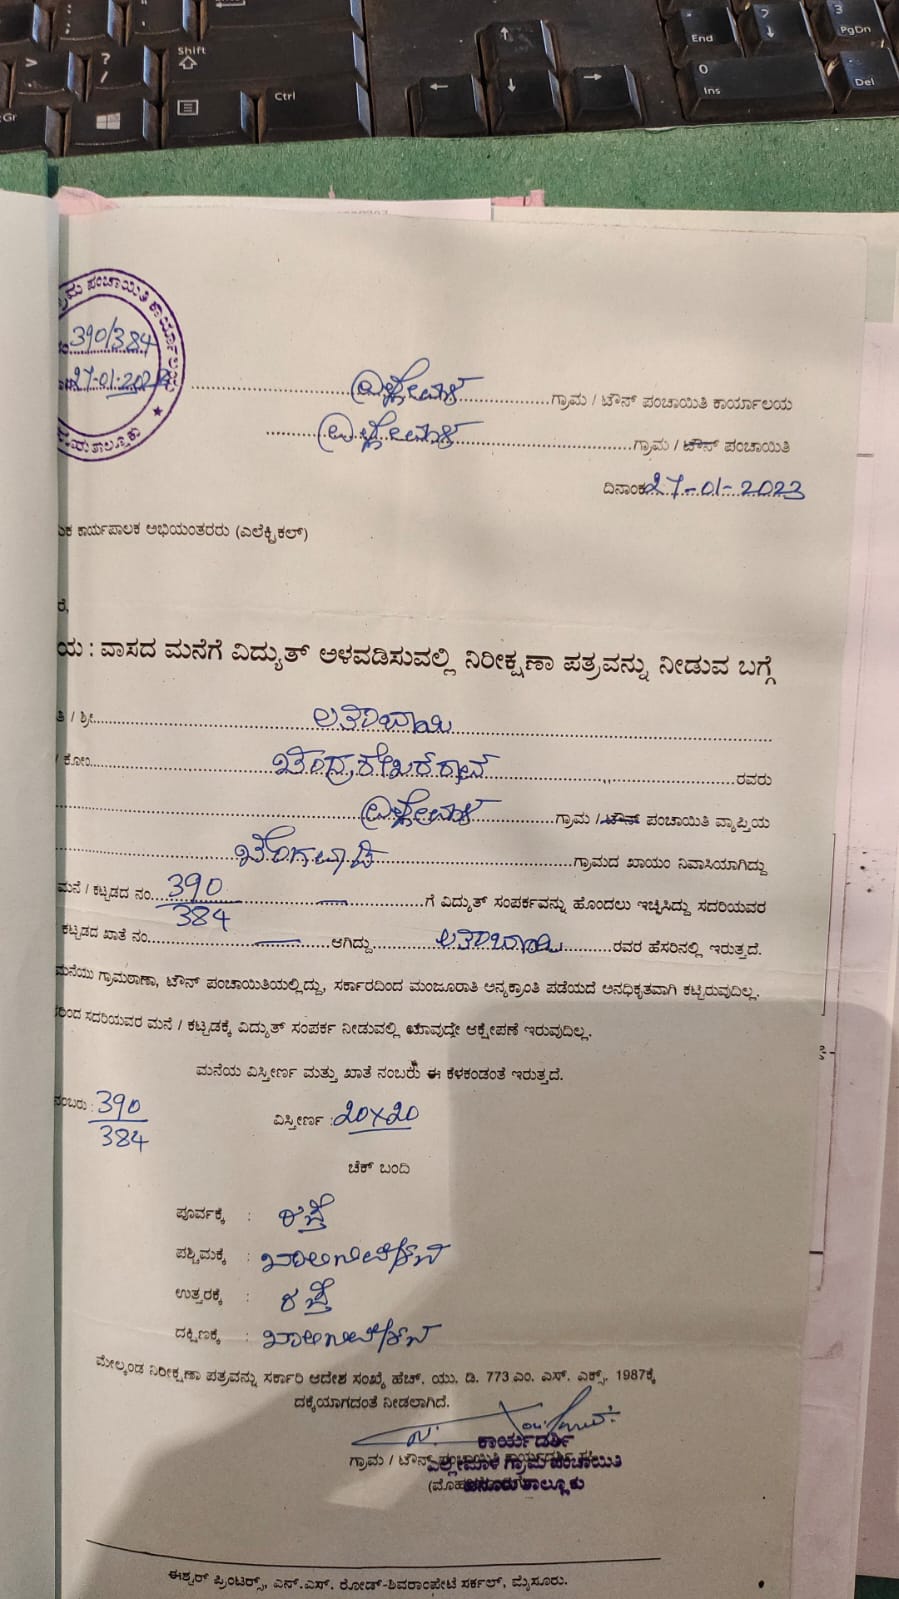 Shift
Ctrl
End
PgDn
0
Ins
Del
ಗ್ರಾಮ ಪಂಚಾಯಿತಿ ಕಾರ್ಯಾಲಯ
390/384
27-01-2023
ಎಲ್ಲೇಮಾಳ ಗ್ರಾಮ / ಟೌನ್ ಪಂಚಾಯಿತಿ ಕಾರ್ಯಾಲಯ
ಎಲ್ಲೇಮಾಳ ಗ್ರಾಮ / ಟೌನ್ ಪಂಚಾಯಿತಿ
ದಿನಾಂಕ 27-01-2023
ಕಾರ್ಯಪಾಲಕ ಅಭಿಯಂತರರು (ಎಲೆಕ್ಟ್ರಿಕಲ್)
ರೆ,
ಯ : ವಾಸದ ಮನೆಗೆ ವಿದ್ಯುತ್ ಅಳವಡಿಸುವಲ್ಲಿ ನಿರೀಕ್ಷಣಾ ಪತ್ರವನ್ನು ನೀಡುವ ಬಗ್ಗೆ
ತಿ / ಶ್ರೀ ಲತಾಬಾಯಿ
/ ಕೋಂ ಚಂದ್ರಶೇಖರ್ ರವರು
ಎಲ್ಲೇಮಾಳ ಗ್ರಾಮ / ಟೌನ್ ಪಂಚಾಯಿತಿ ವ್ಯಾಪ್ತಿಯ
ಚಂಗವಾಡಿ ಗ್ರಾಮದ ಖಾಯಂ ನಿವಾಸಿಯಾಗಿದ್ದು
ಮನೆ / ಕಟ್ಟಡದ ನಂ. 390/384 — ಗೆ ವಿದ್ಯುತ್ ಸಂಪರ್ಕವನ್ನು ಹೊಂದಲು ಇಚ್ಛಿಸಿದ್ದು ಸದರಿಯವರ
ಕಟ್ಟಡದ ಖಾತೆ ನಂ. — ಆಗಿದ್ದು ಲತಾಬಾಯಿ ರವರ ಹೆಸರಿನಲ್ಲಿ ಇರುತ್ತದೆ.
ಮನೆಯು ಗ್ರಾಮಠಾಣಾ, ಟೌನ್ ಪಂಚಾಯಿತಿಯಲ್ಲಿದ್ದು, ಸರ್ಕಾರದಿಂದ ಮಂಜೂರಾತಿ ಅನ್ಯಕ್ರಾಂತಿ ಪಡೆಯದೆ ಅನಧಿಕೃತವಾಗಿ ಕಟ್ಟಿರುವುದಿಲ್ಲ.
ರಿಂದ ಸದರಿಯವರ ಮನೆ / ಕಟ್ಟಡಕ್ಕೆ ವಿದ್ಯುತ್ ಸಂಪರ್ಕ ನೀಡುವಲ್ಲಿ ಯಾವುದೇ ಆಕ್ಷೇಪಣೆ ಇರುವುದಿಲ್ಲ.
ಮನೆಯ ವಿಸ್ತೀರ್ಣ ಮತ್ತು ಖಾತೆ ನಂಬರು ಈ ಕೆಳಕಂಡಂತೆ ಇರುತ್ತದೆ.
ನಂಬರು : 390/384 ವಿಸ್ತೀರ್ಣ : 20x20
ಚೆಕ್ ಬಂದಿ
ಪೂರ್ವಕ್ಕೆ : ರಸ್ತೆ
ಪಶ್ಚಿಮಕ್ಕೆ : ಖಾಲಿ ನಿವೇಶನ
ಉತ್ತರಕ್ಕೆ : ರಸ್ತೆ
ದಕ್ಷಿಣಕ್ಕೆ : ಖಾಲಿ ನಿವೇಶನ
ಮೇಲ್ಕಂಡ ನಿರೀಕ್ಷಣಾ ಪತ್ರವನ್ನು ಸರ್ಕಾರಿ ಆದೇಶ ಸಂಖ್ಯೆ ಹೆಚ್. ಯು. ಡಿ. 773 ಎಂ. ಎಸ್. ಎಕ್ಸ್. 1987ಕ್ಕೆ
ದಕ್ಕೆಯಾಗದಂತೆ ನೀಡಲಾಗಿದೆ.
ಕಾರ್ಯದರ್ಶಿ
ಗ್ರಾಮ / ಟೌನ್ ಪಂಚಾಯಿತಿ ಕಾರ್ಯದರ್ಶಿ
ಎಲ್ಲೇಮಾಳ ಗ್ರಾಮ ಪಂಚಾಯಿತಿ
ಹನೂರು ತಾಲ್ಲೂಕು
ಈಶ್ವರ್ ಪ್ರಿಂಟರ್ಸ್, ಎನ್.ಎಸ್. ರೋಡ್-ಶಿವರಾಂಪೇಟೆ ಸರ್ಕಲ್, ಮೈಸೂರು.